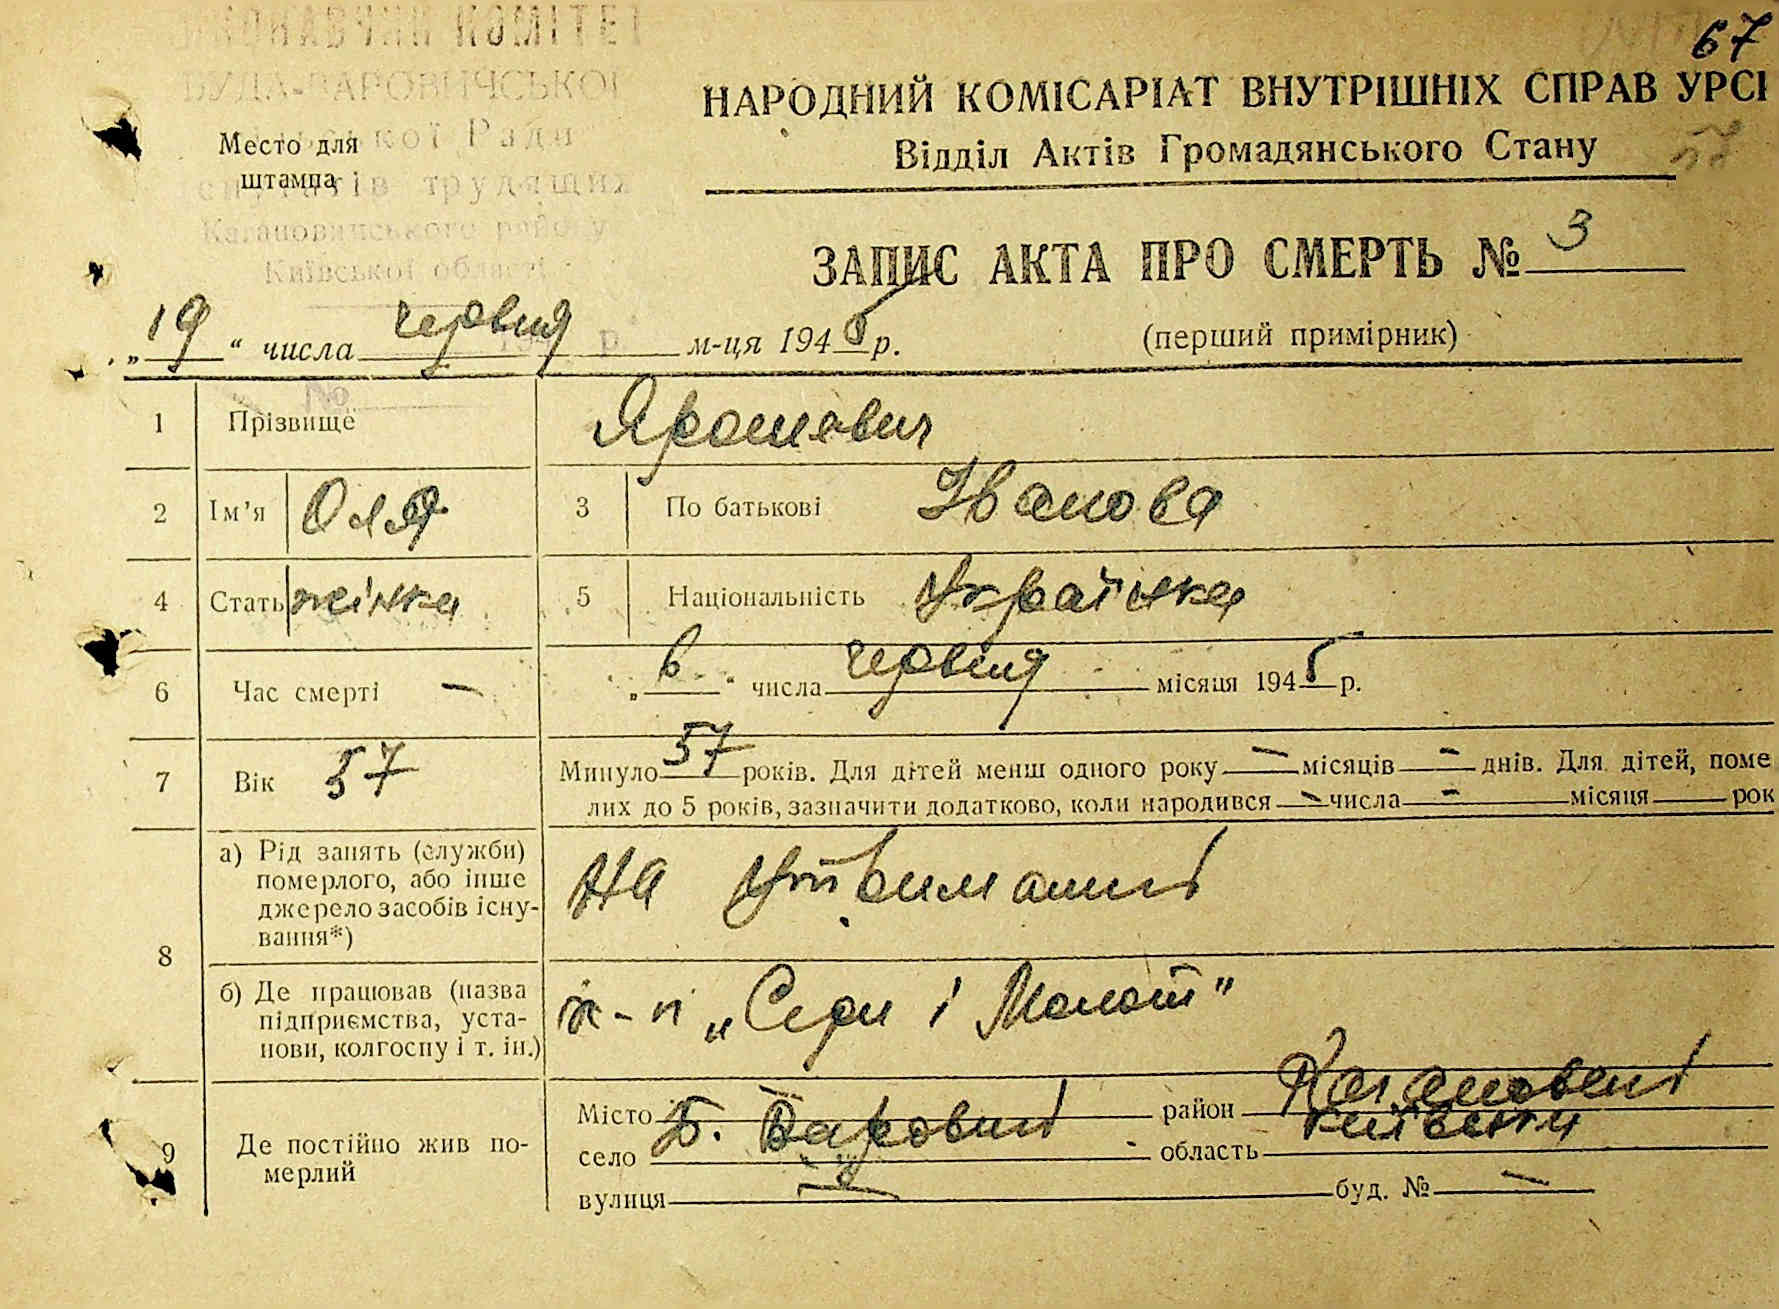 67
ВИКОНАВЧИЙ КОМІТЕТ
БУДА-ВАРОВИЧСЬКОЇ
Ради
трудящих
Кагановицького району
Київської області
Место для
штампа
НАРОДНИЙ КОМІСАРІАТ ВНУТРІШНІХ СПРАВ УРСР
Відділ Актів Громадянського Стану
57
ЗАПИС АКТА ПРО СМЕРТЬ № 3
„19“ числа червня м-ця 1945 р.
(перший примірник)
№
1 Прізвище Ярошевич
2 Ім’я Оля 3 По батькові Іванова
4 Стать жінка 5 Національність Українка
6 Час смерті — „6“ числа червня місяця 1945 р.
7 Вік 57 Минуло 57 років. Для дітей менш одного року — місяців — днів. Для дітей, поме
лих до 5 років, зазначити додатково, коли народився — числа — місяця рок
8 а) Рід занять (служби)
померлого, або інше
джерело засобів існу-
вання*)
На утриманні
б) Де працював (назва
підприємства, уста-
нови, колгоспу і т. ін.)
к-п „Серп і Молот"
9 Де постійно жив по-
мерлий
Місто район Кагановичі
село Б. Варовичі область Київська
вулиця — буд. № —